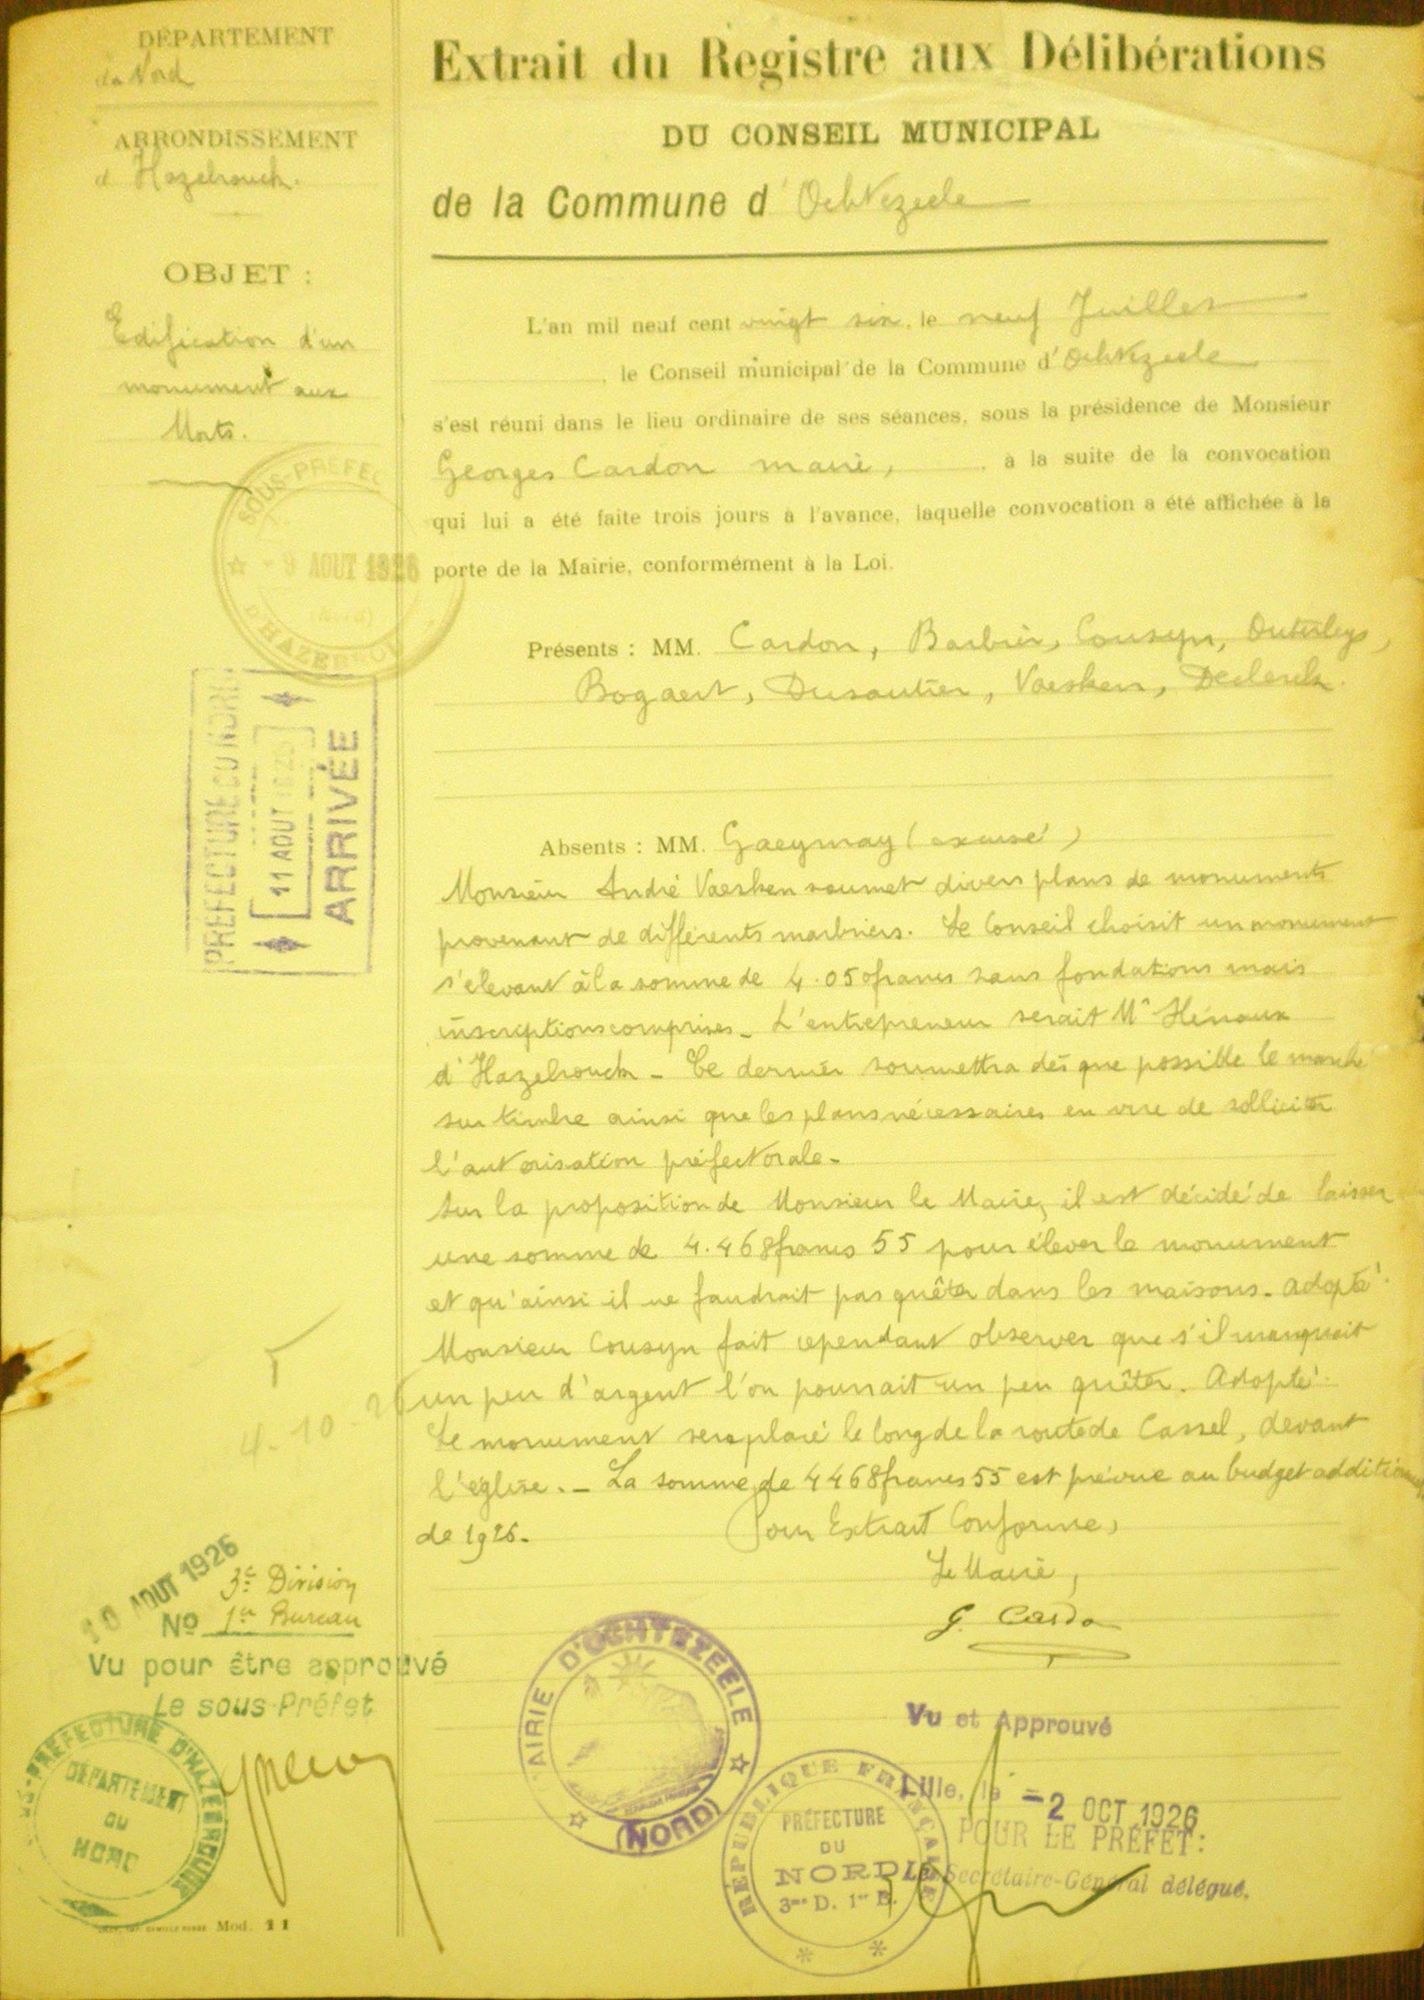 DÉPARTEMENT
du Nord
ARRONDISSEMENT
d' Hazebrouck.
OBJET :
Edification d'un
monument aux
Morts.
SOUS-PRÉFEC
- 9 AOUT 1926
(Nord)
D'HAZEBROU
PREFECTURE DU NORD
11 AOUT 1926
ARRIVÉE
4-10-26
10 AOUT 1926
3e Division
No 1er Bureau
Vu pour être approuvé
Le sous-Préfet
S-PRÉFECTURE D'HAZEBROUCK
DÉPARTEMENT
DU
NORD
Mod. 11
Extrait du Registre aux Délibérations
DU CONSEIL MUNICIPAL
de la Commune d'Ochtezeele
L'an mil neuf cent vingt six, le neuf Juillet
, le Conseil municipal de la Commune d'Ochtezeele
s'est réuni dans le lieu ordinaire de ses séances, sous la présidence de Monsieur
Georges Cardon maire, , à la suite de la convocation
qui lui a été faite trois jours à l'avance, laquelle convocation a été affichée à la
porte de la Mairie, conformément à la Loi.
Présents : MM. Cardon, Barbier, Cousyn, Outerleys,
Bogaert, Dusautier, Vaesken, Declerck.
Absents : MM. Gaeymay (excusé)
Monsieur André Vaesken soumet divers plans de monuments
provenant de différents marbriers. Le Conseil choisit un monument
s'élevant à la somme de 4.050 francs sans fondations mais
inscriptions comprises _ L'entrepreneur serait Mr Hénaux
d'Hazebrouck - Ce dernier soumettra dès que possible le marché
sur timbre ainsi que les plans nécessaires en vue de solliciter
l'autorisation préfectorale -
Sur la proposition de Monsieur le Maire, il est décidé de laisser
une somme de 4.468 francs 55 pour élever le monument
et qu'ainsi il ne faudrait pas quêter dans les maisons. Adopté.
Monsieur Cousyn fait cependant observer que s'il manquait
un peu d'argent l'on pourrait un peu quêter. Adopté.
Le monument sera placé le long de la route de Cassel, devant
l'église. _ La somme de 4468 francs 55 est prévue au budget additionnel
de 1926.
Pour Extrait Conforme,
Le Maire,
G. Cardon
MAIRIE D'OCHTEZEELE
(NORD)
Vu et Approuvé
Lille, le -2 OCT 1926
POUR LE PRÉFET:
Le Secrétaire-Général délégué.
RÉPUBLIQUE FRANÇAISE
PRÉFECTURE
DU
NORD
3me D. 1er B.